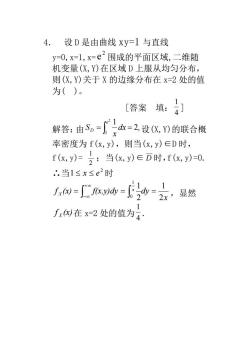 4. 设 D 是由曲线 xy=1 与直线
y=0,x=1,x=e² 围成的平面区域,二维随
机变量(X,Y)在区域 D 上服从均匀分布,
则(X,Y)关于 X 的边缘分布在 x=2 处的值
为( )。
[答案 填: 1/4]
解答:由 S_D = ∫₁^{e²} 1/x dx = 2, 设(X,Y)的联合概
率密度为 f(x,y), 则当(x,y)∈D 时,
f(x,y)= 1/2 ; 当(x,y)∈ D̄ 时,f(x,y)=0.
∴当 1 ≤ x ≤ e² 时
f_X(x) = ∫_{-∞}^{+∞} f(x.y)dy = ∫₀^{1/x} 1/2 dy = 1/2x , 显然
f_X(x) 在 x=2 处的值为 1/4 .